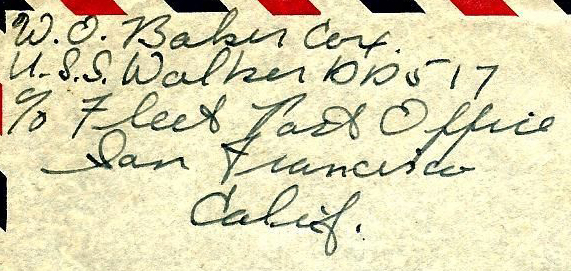 W.O. Baker Cox.
U.S.S. Walker DD517
c/o Fleet Post Office
San Francisco
Calif.